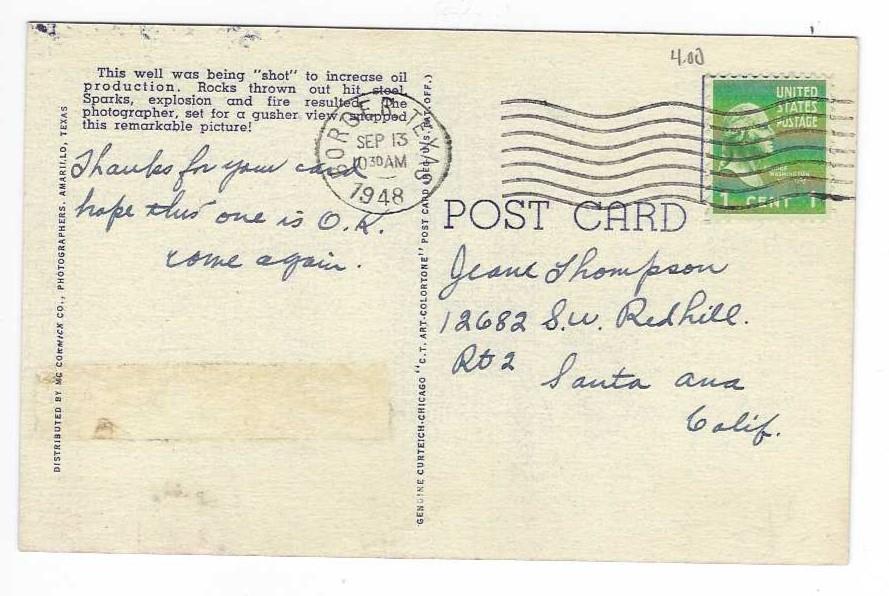 4.00
This well was being "shot" to increase oil
production. Rocks thrown out hit steel.
Sparks, explosion and fire resulted. The
photographer, set for a gusher view, snapped
this remarkable picture!
BORGER TEXAS
SEP 13
10 30 AM
1948
UNITED
STATES
POSTAGE
WASHINGTON
1 CENT 1
POST CARD
Thanks for your card
hope this one is O.K.
come again.
Jeane Thompson
12682 S.W. Redhill.
Rt 2
Santa ana
Calif.
DISTRIBUTED BY MC CORMICK CO., PHOTOGRAPHERS, AMARILLO, TEXAS
GENUINE CURTEICH-CHICAGO "C.T. ART-COLORTONE" POST CARD (REG. U.S. PAT. OFF.)